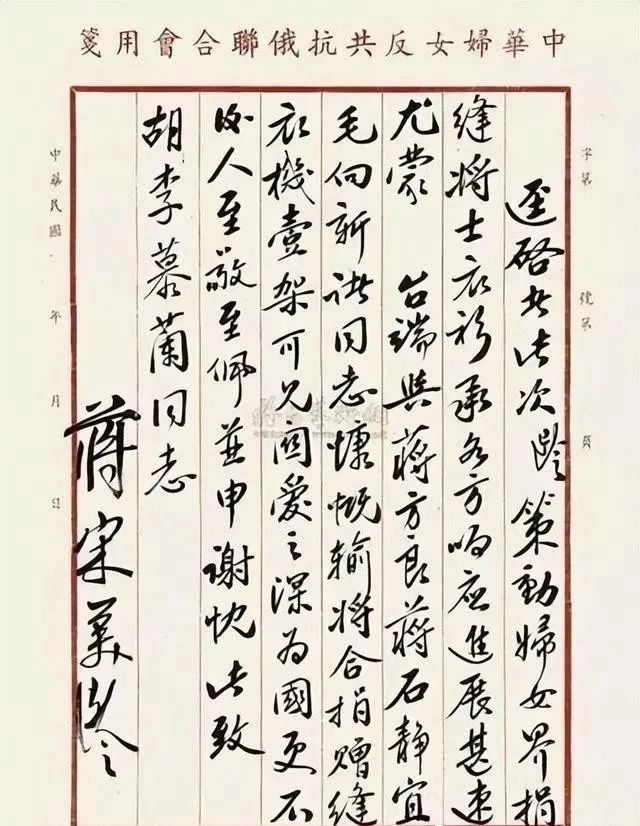 中華婦女反共抗俄聯合會用箋
字第 號第 頁
逕啓者此次齡策動婦女界捐
縫將士衣衫承各方响应進展甚速
尤蒙 台端與蔣方良蔣石靜宜
毛向新諸同志慷慨輸將合捐贈縫
衣機壹架可見関愛之深為國更不
後人至敬至佩並申謝忱此致
胡李慕蘭同志
蔣宋美齡
中華民國 年 月 日